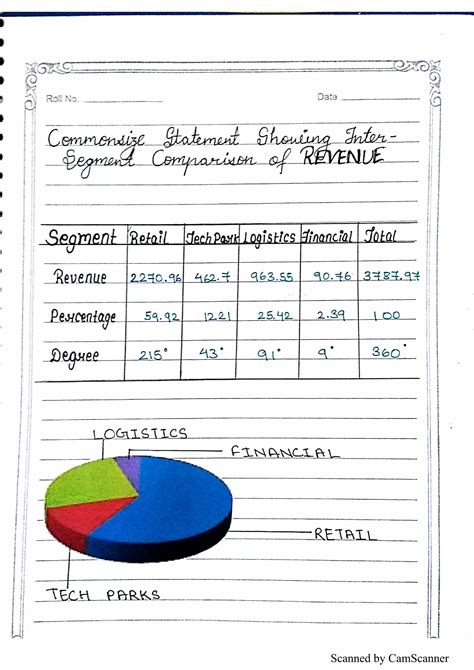 Roll No.
Date
Commonsize Statement Showing Inter-
Segment Comparison of REVENUE
Segment Retail Tech Park Logistics Financial Total
Revenue 2270.96 462.7 963.55 90.76 3787.97
Percentage 59.92 12.21 25.42 2.39 100
Degree 215° 43° 91° 9° 360°
LOGISTICS
FINANCIAL
RETAIL
TECH PARKS
Scanned by CamScanner